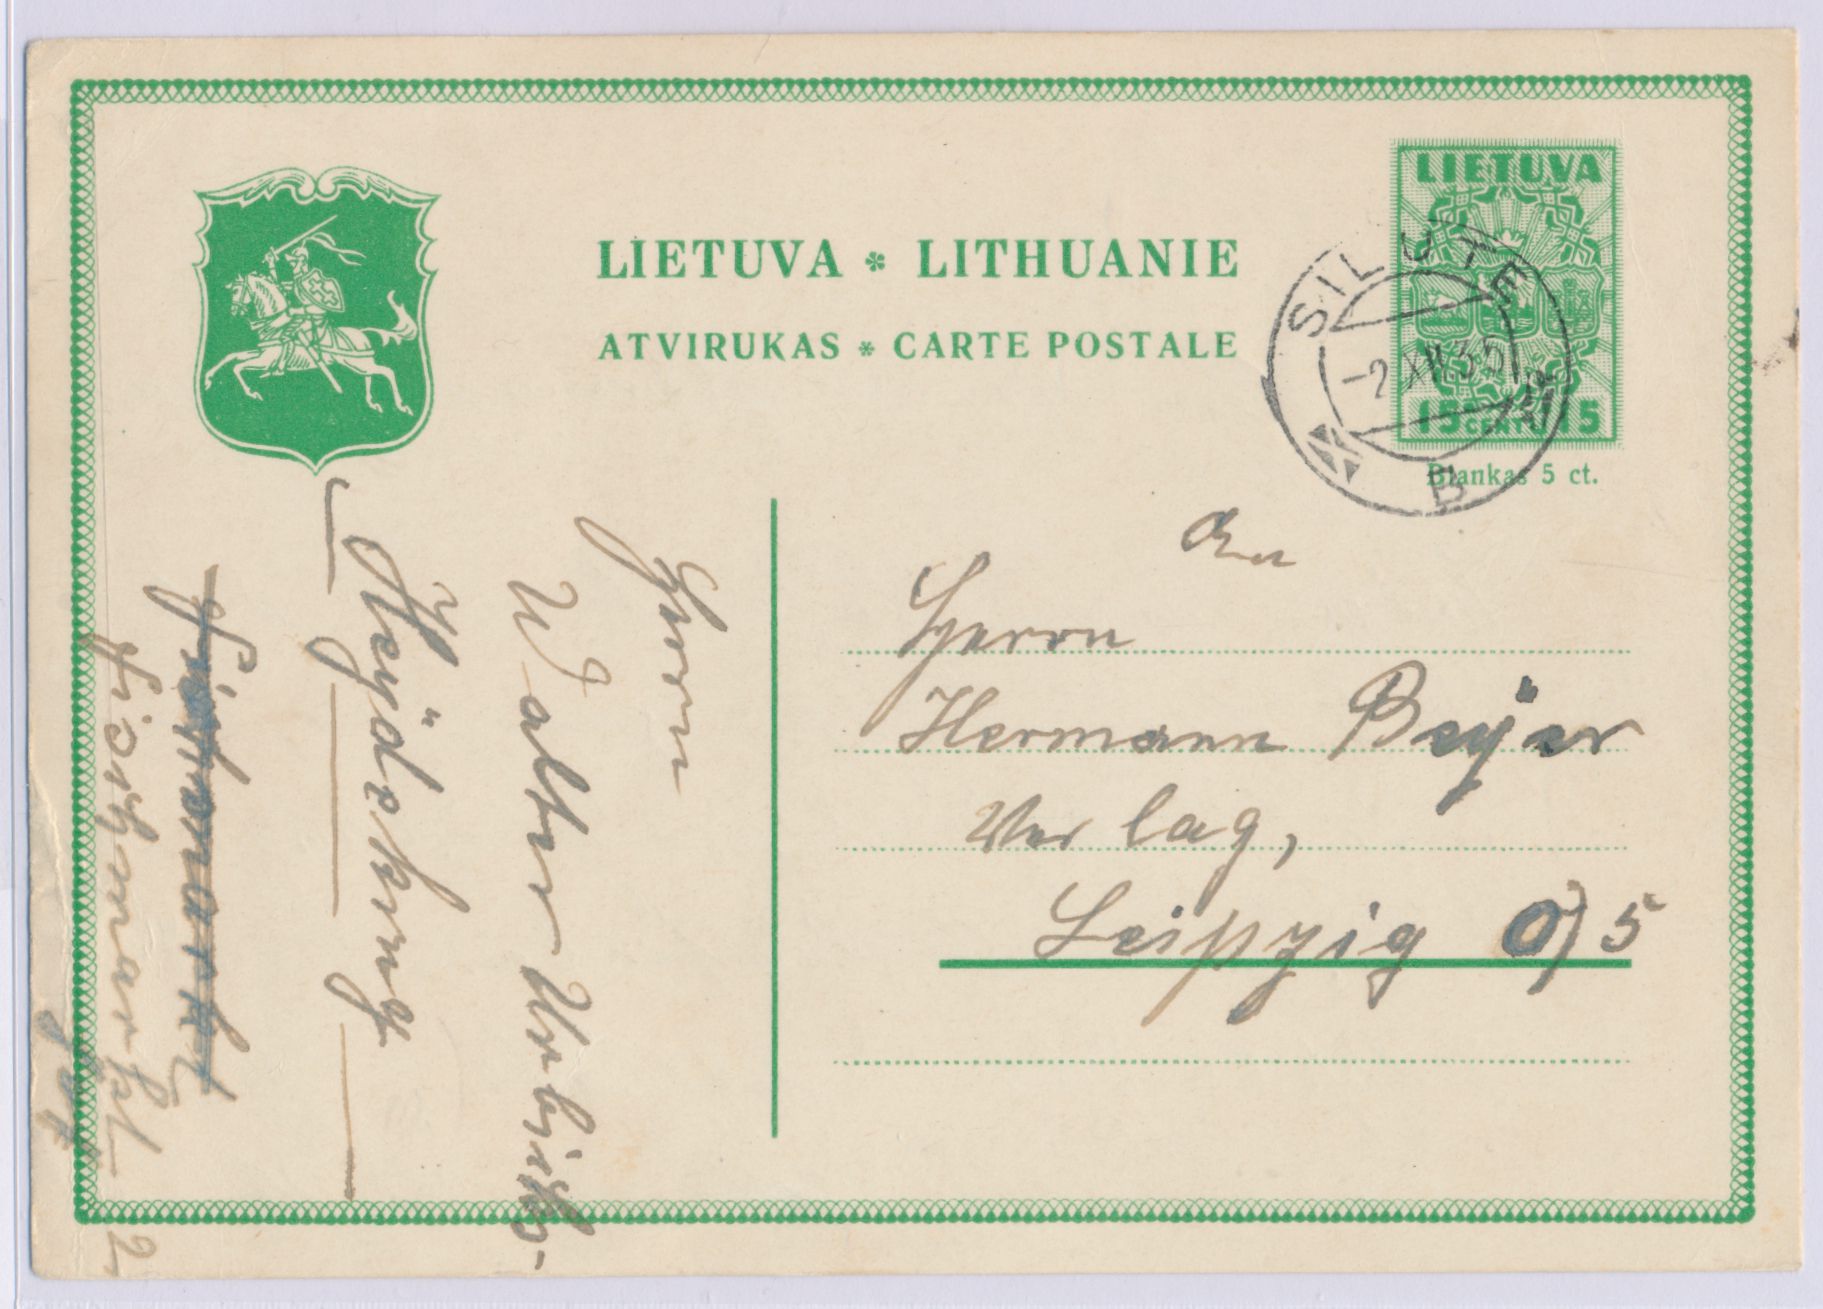 LIETUVA * LITHUANIE
ATVIRUKAS * CARTE POSTALE
LIETUVA
15 CENTŲ 15
Blankas 5 ct.
SILUTE
-2 XII 35
B
An
Herrn
Hermann Beyer
Verlag,
Leipzig O/5
Herrn
Walter
Heÿdekrug
Fischmarkt
2